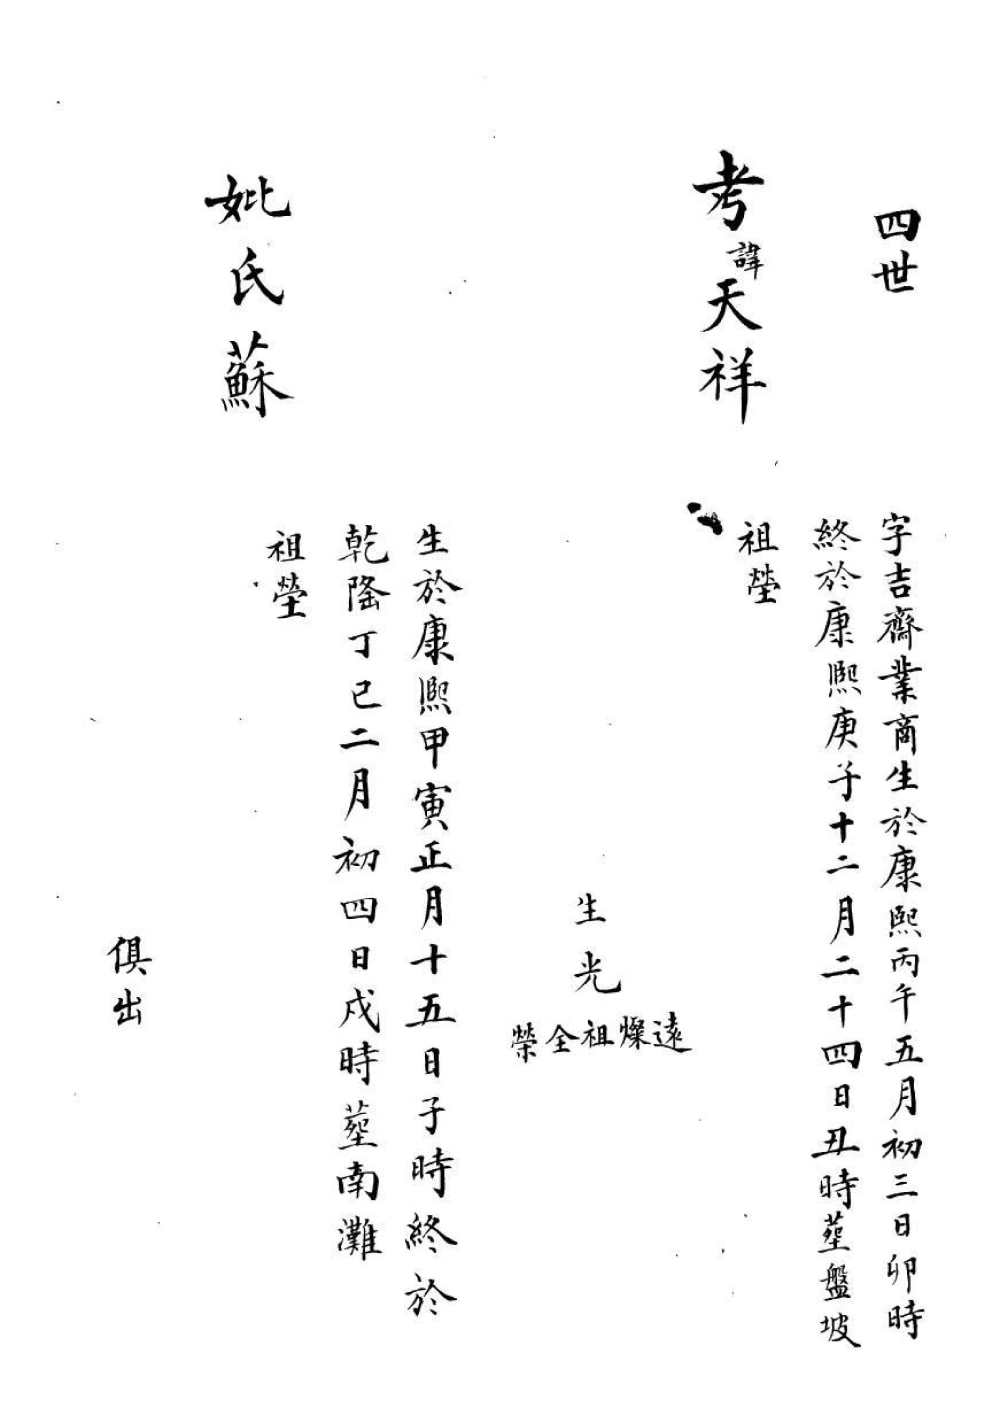 四世
考諱天祥
字吉齋業商生於康熙丙午五月初三日卯時
終於康熙庚子十二月二十四日丑時塟盤坡
祖塋
生光
遠燦祖全榮
妣氏蘇
生於康熙甲寅正月十五日子時終於
乾隆丁巳二月初四日戌時塟南灘
祖塋
俱出